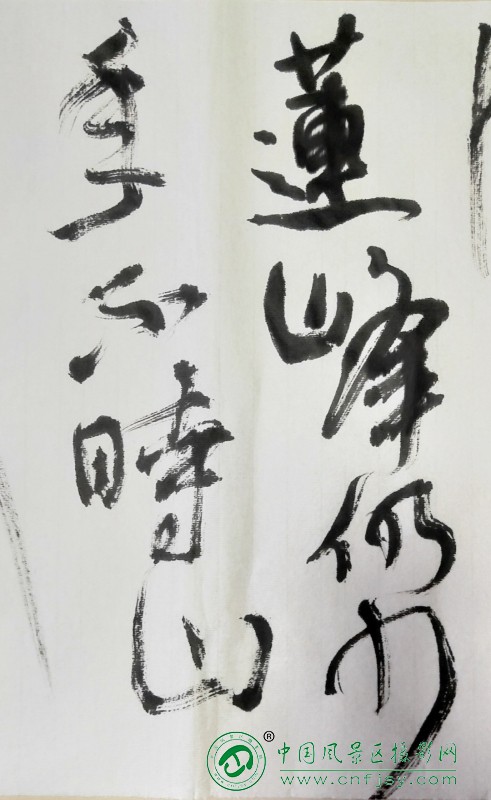 蓮峰仍
不時山
®
中国风景区摄影网
www.cnfjsy.com